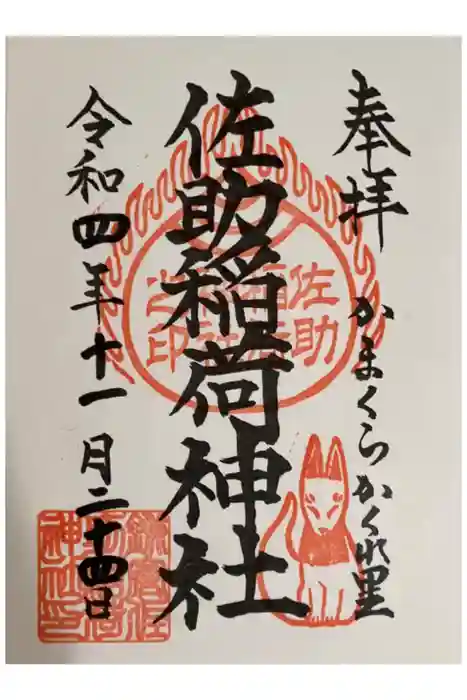 奉拝
かまくらかくれ里
佐助稲荷神社
令和四年十一月二十四日